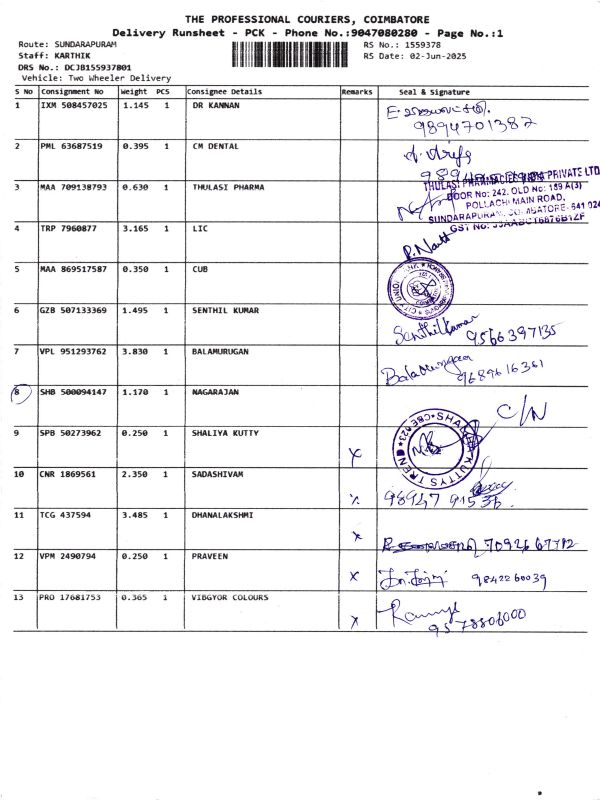 THE PROFESSIONAL COURIERS, COIMBATORE
Delivery Runsheet - PCK - Phone No.:9047080280 - Page No.:1
Route: SUNDARAPURAM
RS No.: 1559378
Staff: KARTHIK
RS Date: 02-Jun-2025
DRS No.: DCJB155937801
Vehicle: Two Wheeler Delivery
S No Consignment No Weight PCS Consignee Details Remarks Seal & Signature
1 IXM 508457025 1.145 1 DR KANNAN
9894701387
2 PML 63687519 0.395 1 CM DENTAL
3 MAA 709138793 0.630 1 THULASI PHARMA
THULASI PHARMACIES INDIA PRIVATE LTD
DOOR No: 242, OLD No: 189 A(3)
POLLACHI MAIN ROAD,
SUNDARAPURAM, COIMBATORE- 641 024
GST No:
4 TRP 7960877 3.165 1 LIC
5 MAA 869517587 0.350 1 CUB
6 GZB 507133369 1.495 1 SENTHIL KUMAR
Senthilkumar 9566397135
7 VPL 951293762 3.830 1 BALAMURUGAN
Balamurugan 9689616361
8 SHB 500094147 1.170 1 NAGARAJAN
C/N
9 SPB 50273962 0.250 1 SHALIYA KUTTY X
10 CNR 1869561 2.350 1 SADASHIVAM X
98947 91536
11 TCG 437594 3.485 1 DHANALAKSHMI X
12 VPM 2490794 0.250 1 PRAVEEN X
9842260039
13 PRO 17681753 0.365 1 VIBGYOR COLOURS X
9578806000